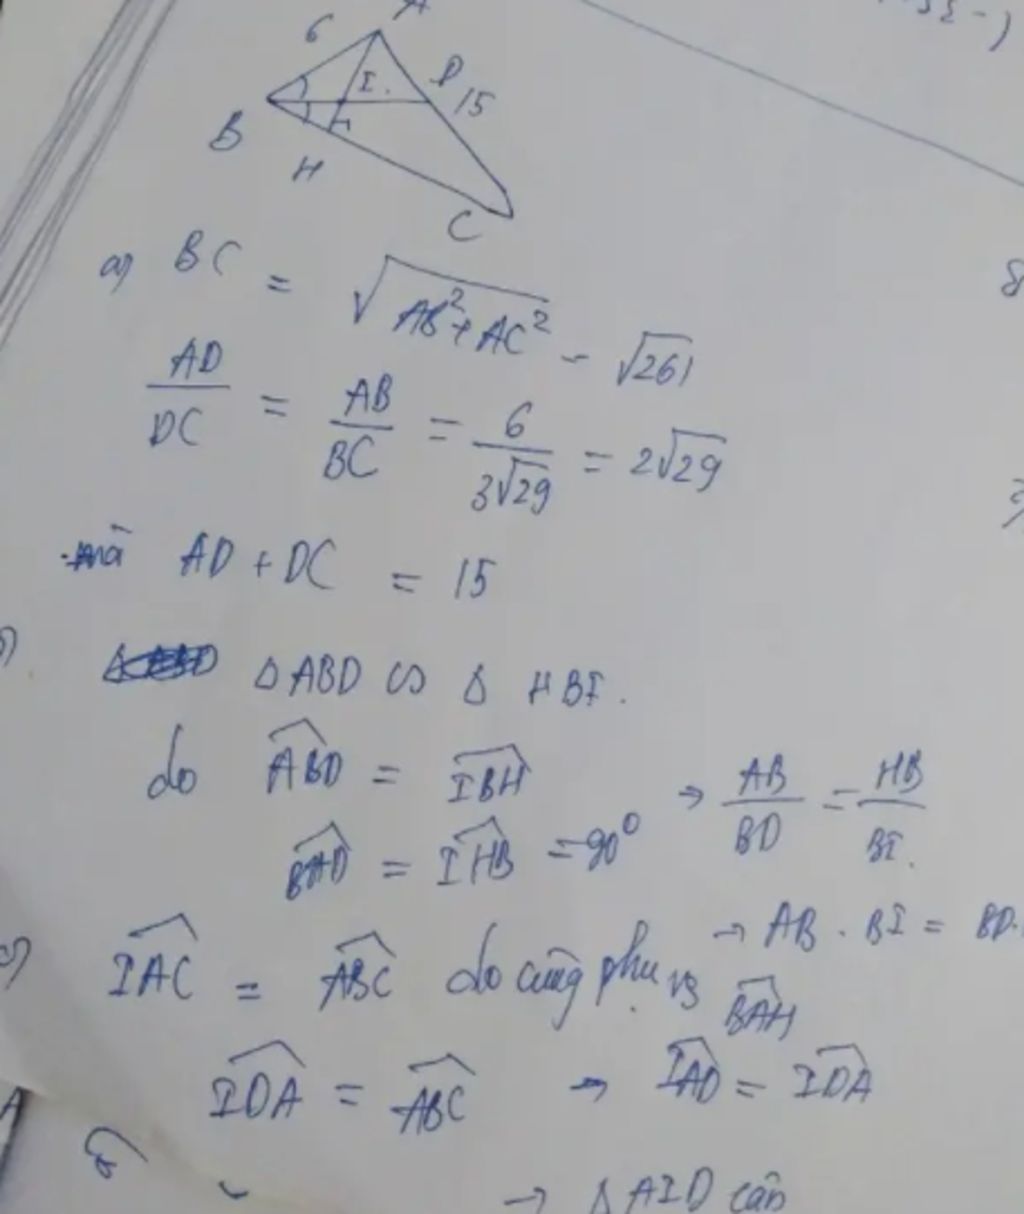 A
6
I
D
15
B
H
C
a) BC = √(AB² + AC²) = √261
AD/DC = AB/BC = 6/(3√29) = 2√29
mà AD + DC = 15
ΔABD ∽ Δ HBI.
do ∠ABD = ∠IBH → AB/BD = HB/BI.
∠BAD = ∠IHB = 90° → AB . BI = BD.
c) ∠IAC = ∠ABC do cùng phụ vs ∠BAH
∠IDA = ∠ABC → ∠IAD = ∠IDA
→ Δ AID cân